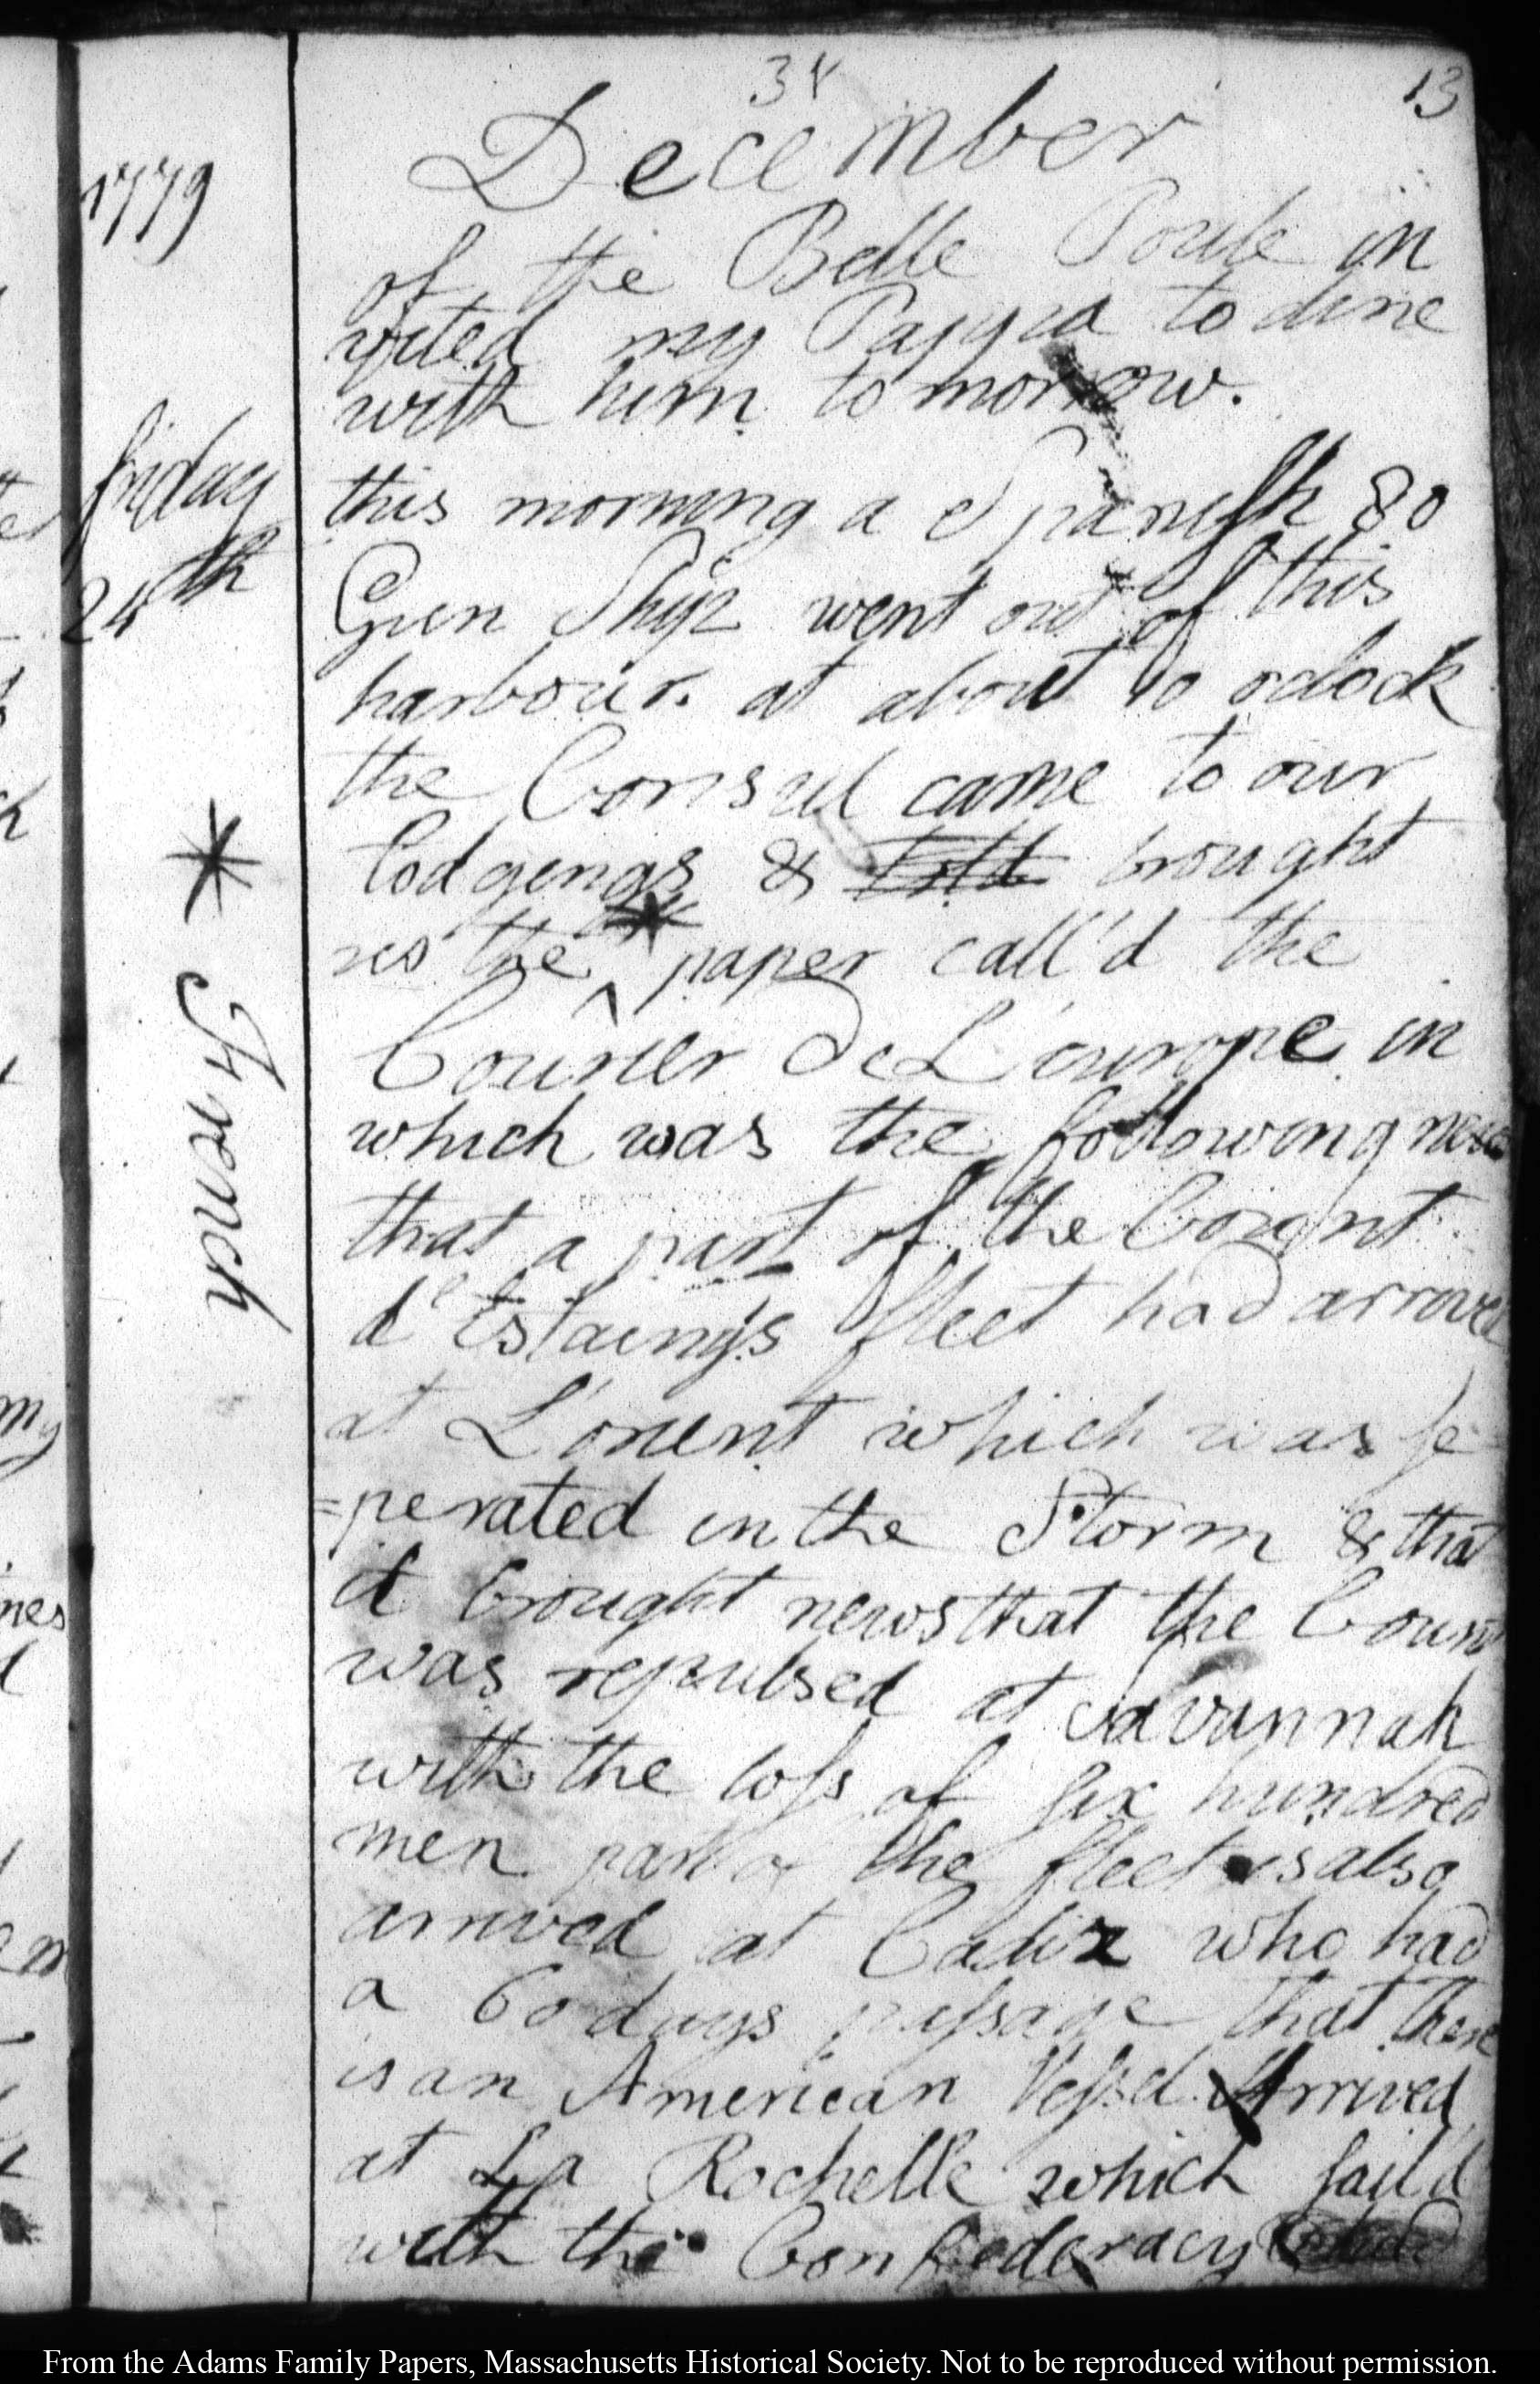 13
December
1779
of the Belle Poule in
vited my Pappa to dine
with him to morrow.
friday
24th
this morning a Spanish 80
Gun Ship went out of this
harbour. at about 10 oclock
the Consul came to our
lodgings & told brought
us the ^* paper call'd the
* French
Courier De L'europe in
which was the following news
that a part of the Count
d'Estaing's fleet had arrived
at L'orient which was se
=perated in the Storm & that
it brought news that the Count
was repulsed at Savannah
with the loss of six hundred
men part of the fleet is also
arrived at Cadiz who had
a 60 days passage that there
is an American Vessel Arrived
at La Rochelle which sail'd
with the Confederacy
From the Adams Family Papers, Massachusetts Historical Society. Not to be reproduced without permission.